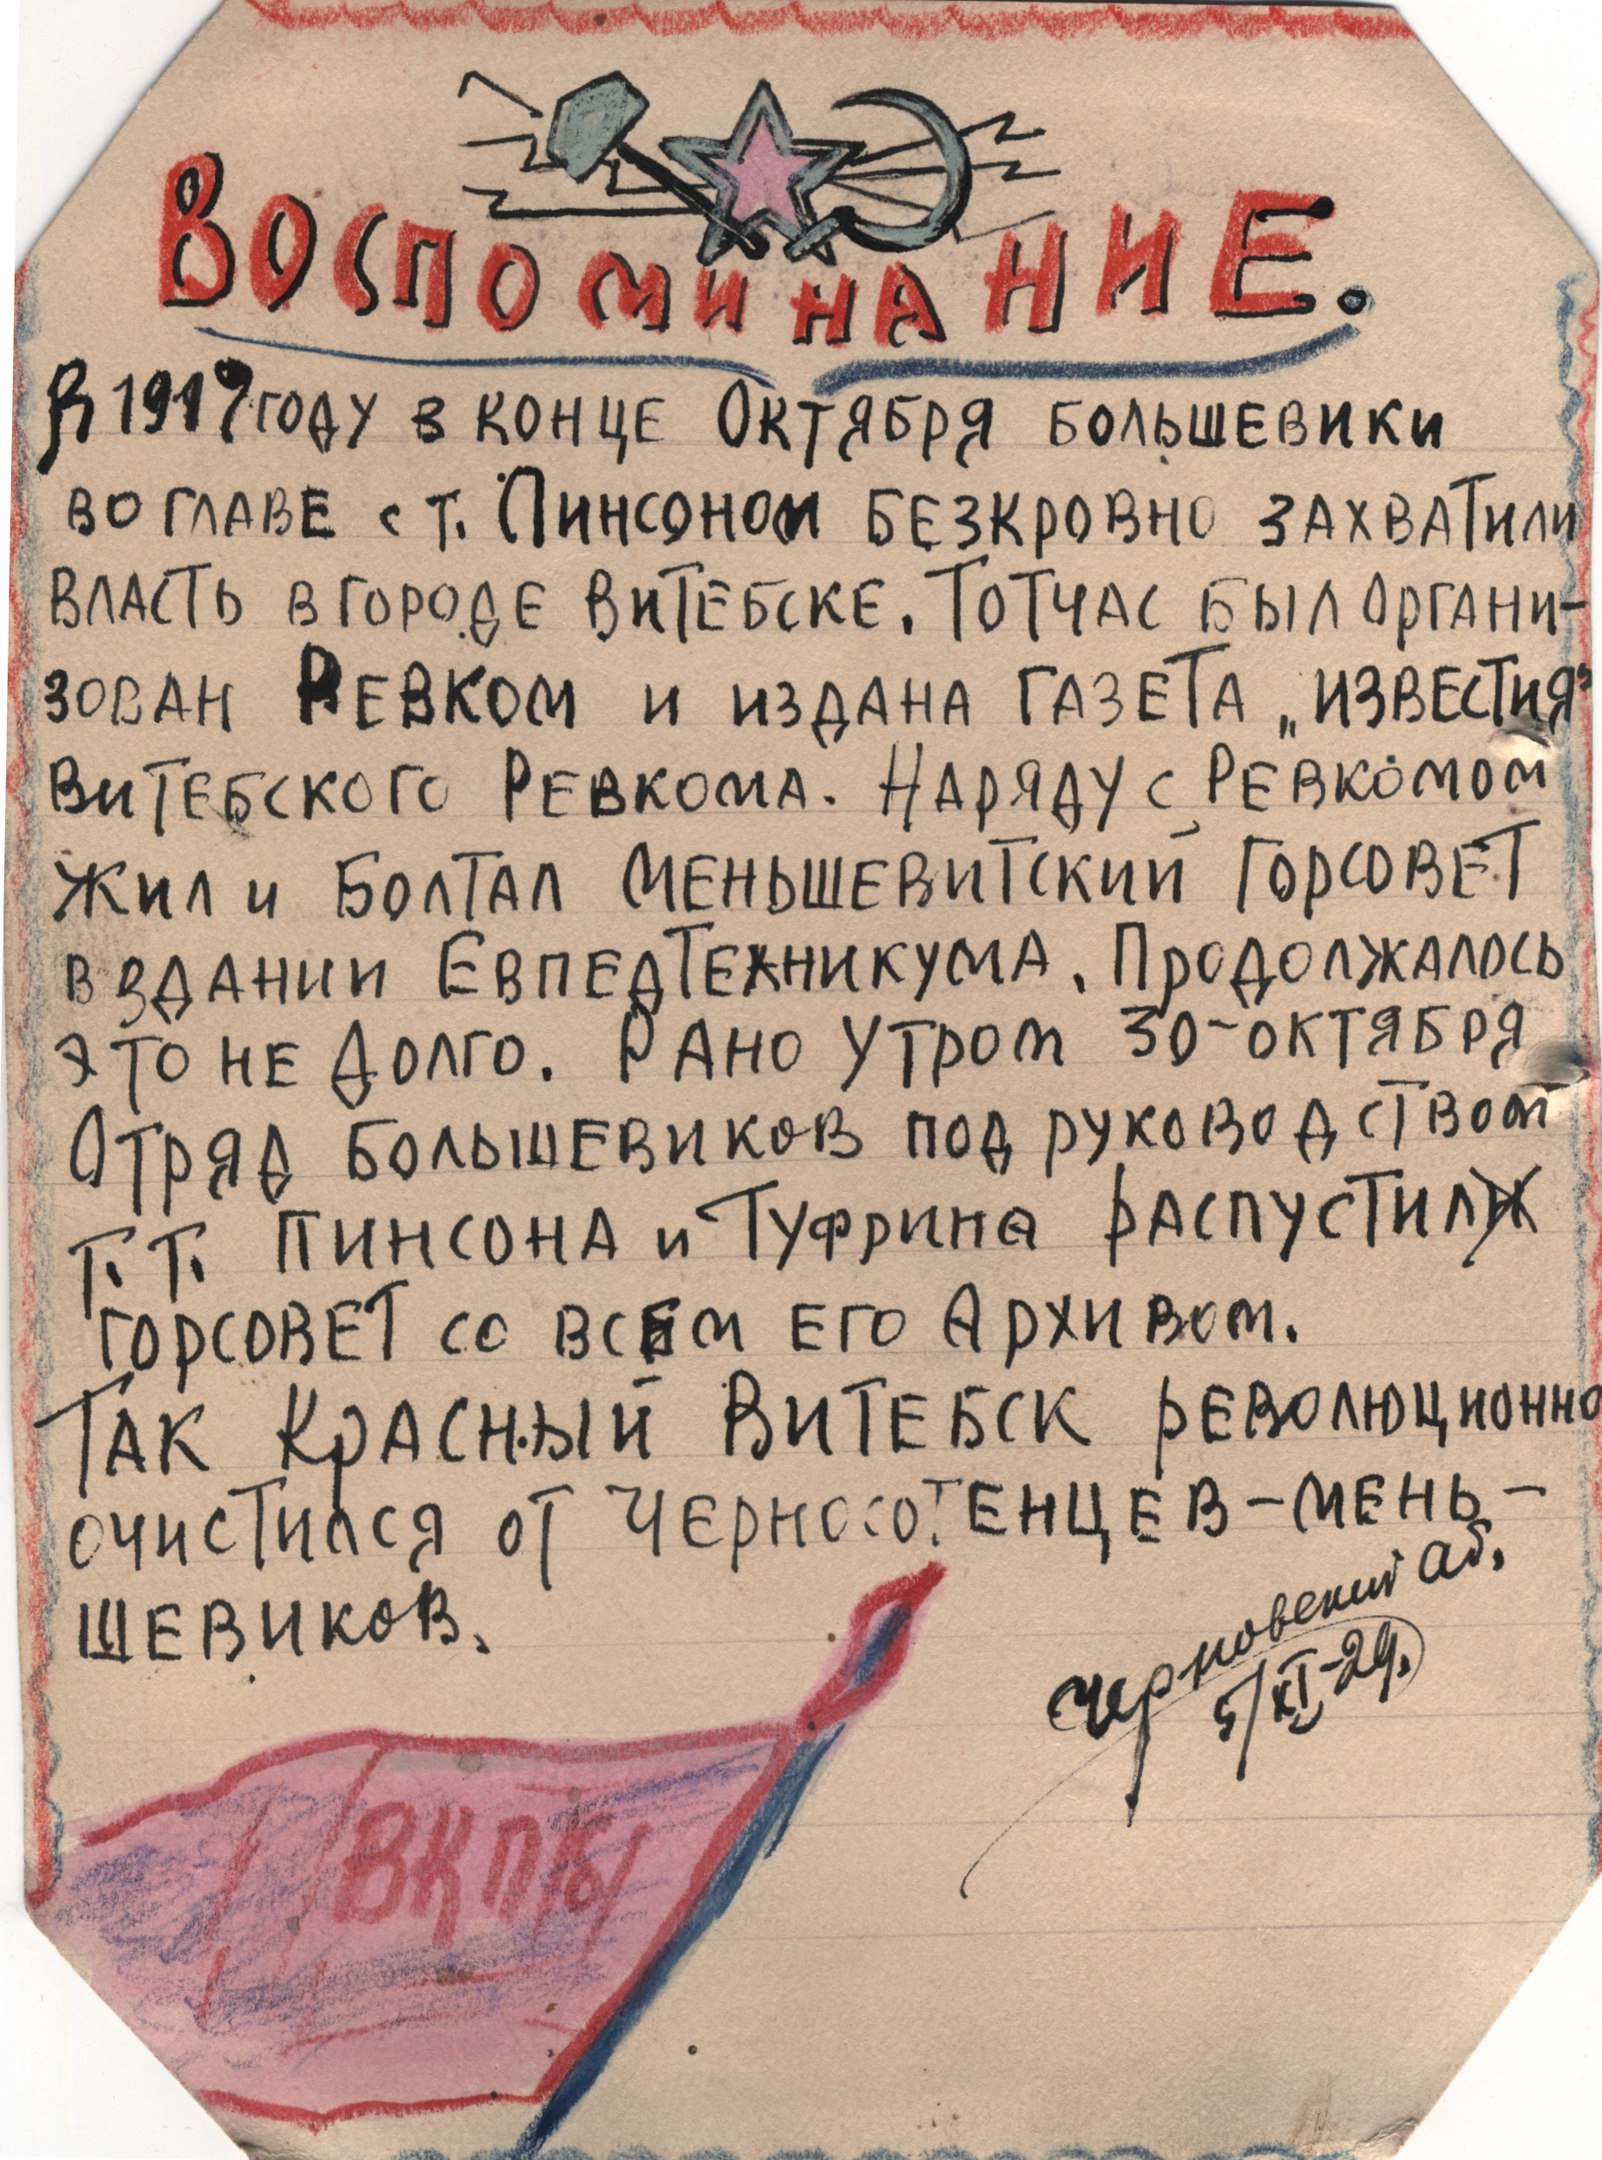 Воспоминание.
В 1917 году в конце Октября большевики
во главе с т. Пинсоном безкровно захватили
власть в городе Витебске. Тотчас был органи-
зован Ревком и издана газета „Известия"
Витебского Ревкома. Наряду с Ревкомом
жил и болтал меньшевитский горсовет
в здании Евпедтехникума. Продолжалось
это не долго. Рано утром 30-октября
Отряд большевиков под руководством
т.т. Пинсона и Туфрина распустил
горсовет со всем его Архивом.
Так Красный Витебск революционно
очистился от черносотенцев-мень-
шевиков.
Черновский аб.
5/XI-29.
ВКП/б/